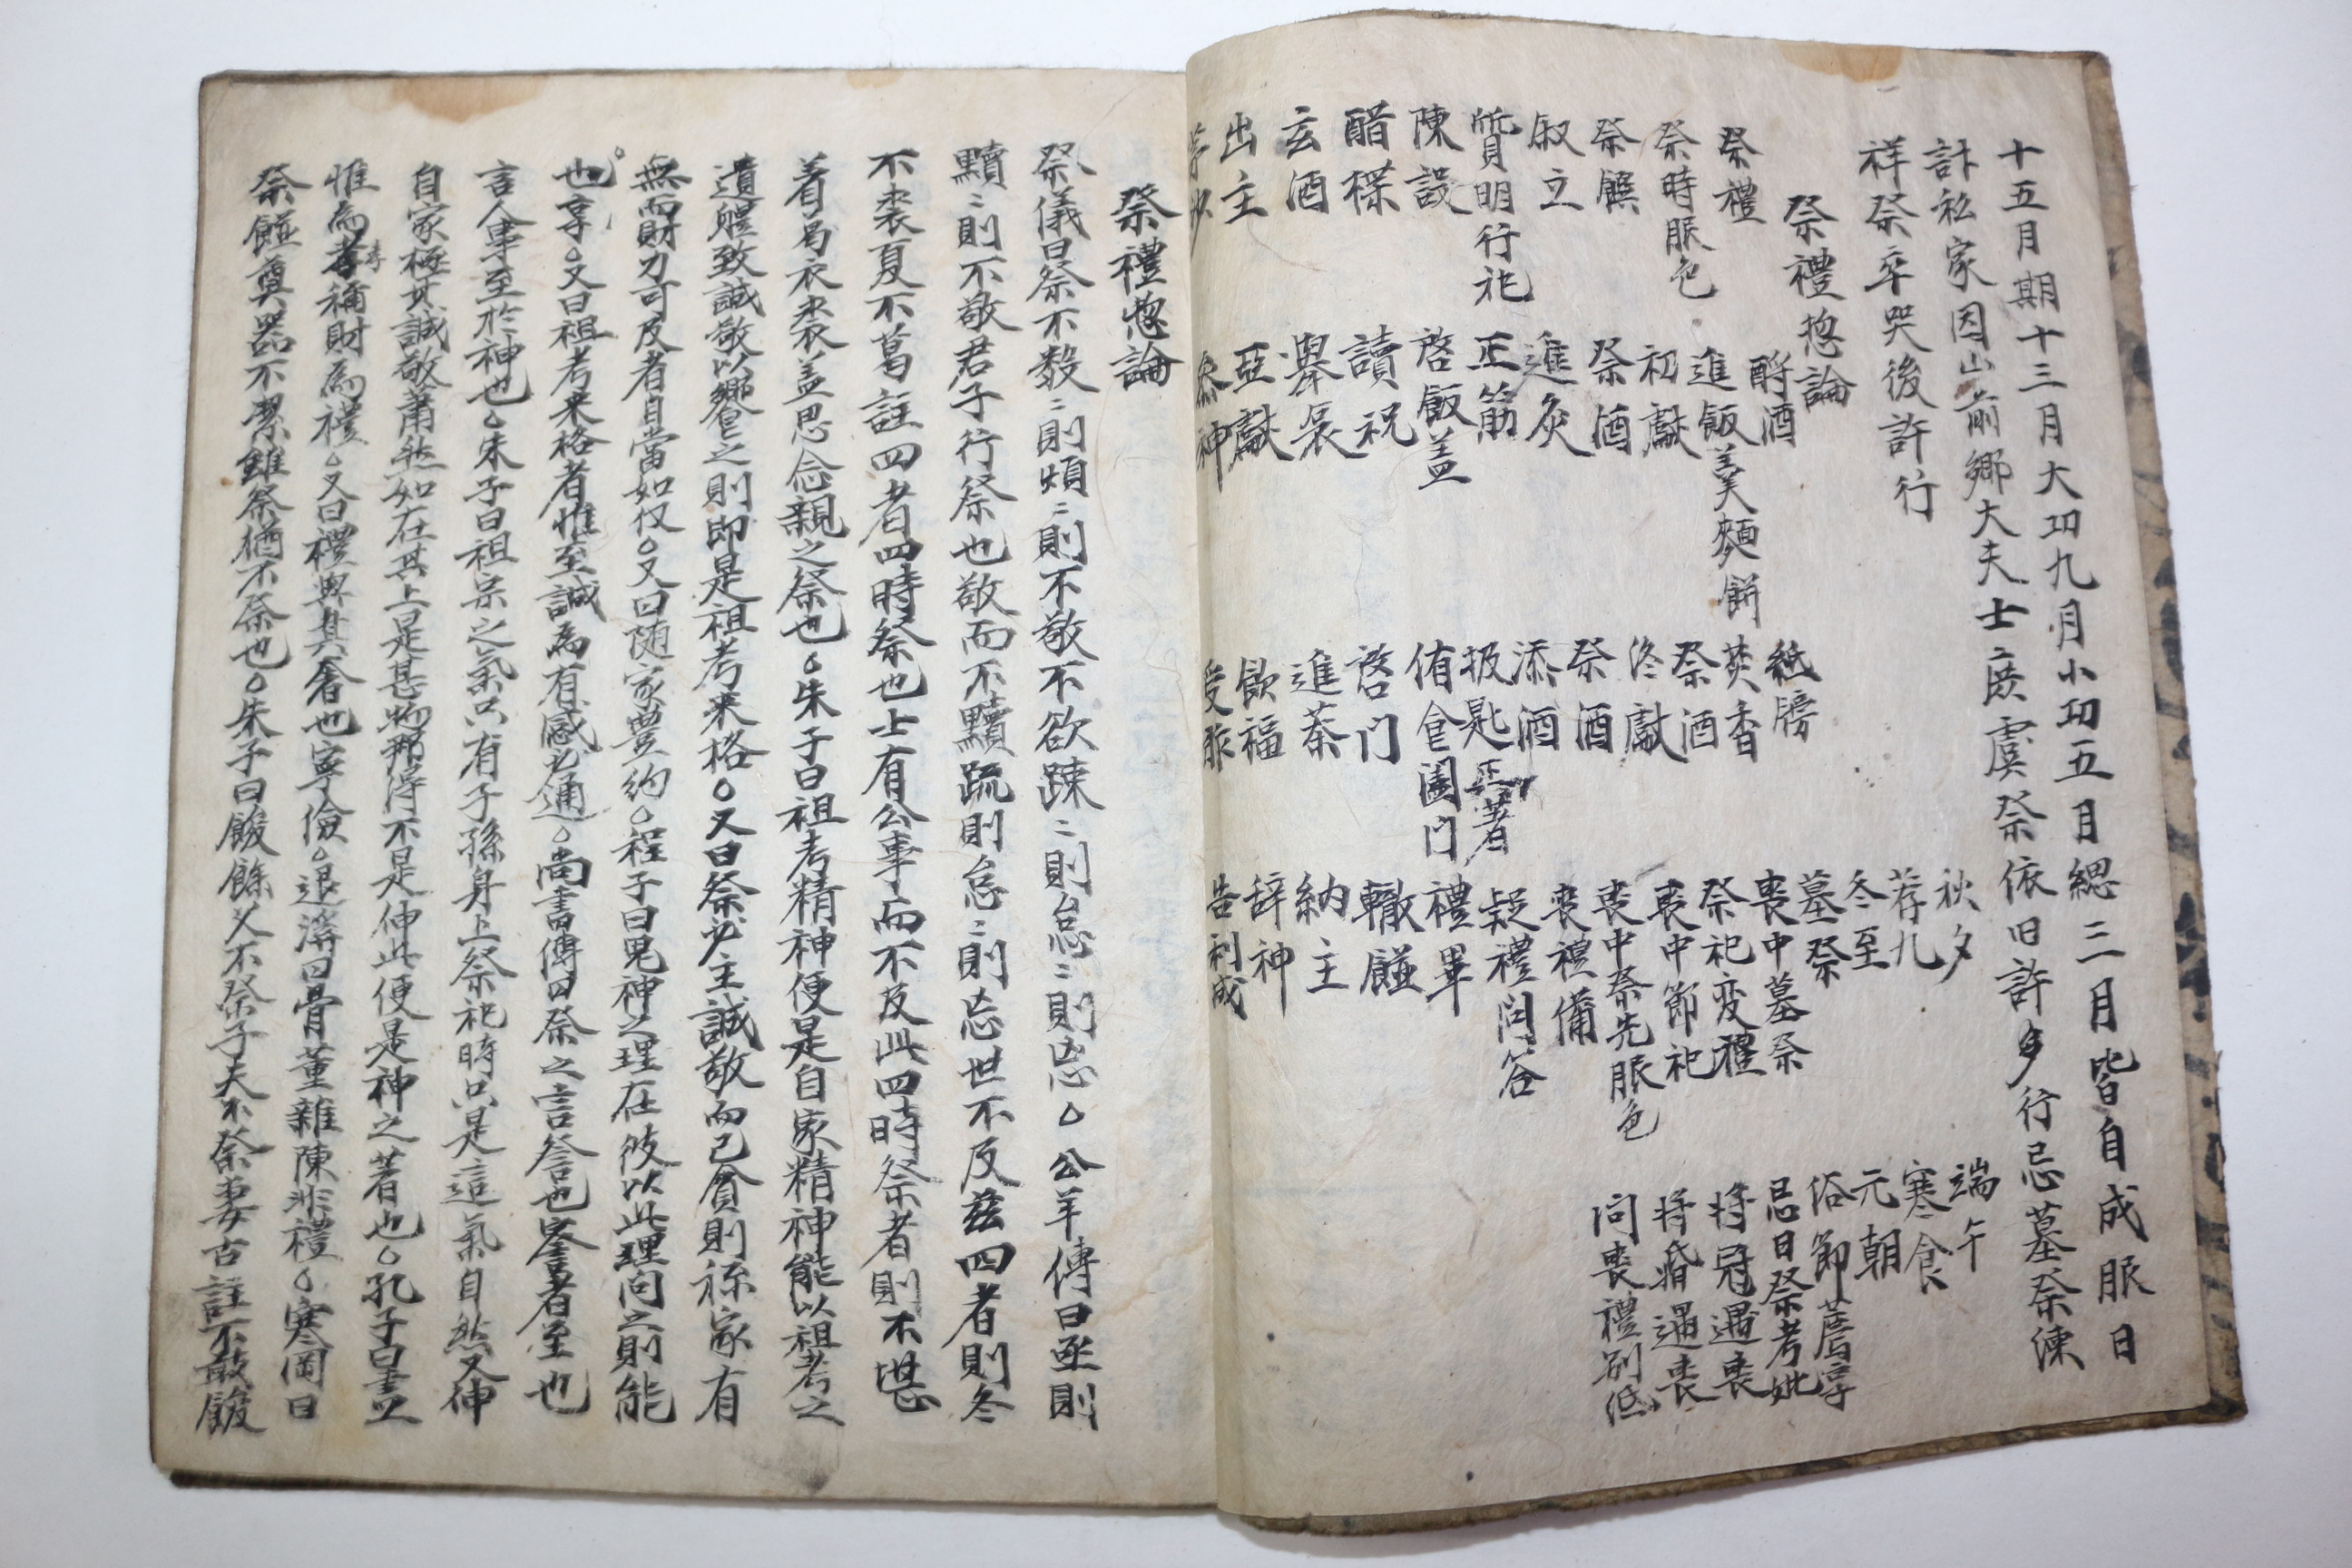 十五月期十三月大功九月小功五月緦三月皆自成服日
計私家因山前鄉大夫士庶虞祭依旧許多行忌墓祭練
祥祭卒哭後許行
祭禮惣論
祭禮
祭時服色
祭饌
叙立
質明行祀
陳設
醋楪
玄酒
出主
茅沙
酹酒
進飯羹麵餅
初獻
祭酒
進炙
正筯
啓飯盖
讀祝
舉哀
亞獻
參神
紙牓
焚香
祭酒
終獻
祭酒
添酒
扱匙正著
侑食闔门
啓门
進茶
飮福
受胙
秋夕
荐九
冬至
墓祭
喪中墓祭
祭祀変禮
喪中節祀
喪中祭先服色
喪禮備
疑禮问答
禮畢
轍餕
納主
辞神
告利成
端午
寒食
元朝
俗節薦享
忌日祭考妣
将冠遇喪
将婚遇喪
问喪禮別紙
祭禮惣論
祭儀曰祭不數〻則煩〻則不敬不欲踈〻則怠〻則忘○公羊傳曰亟則
黷〻則不敬君子行祭也敬而不黷疏則怠〻則忘世不反玆四者則冬
不裘夏不葛註四者四時祭也士有公事而不及此四時祭者則不堪
着局衣裘盖思念親之祭也○朱子曰祖考精神便是自家精神能以祖考之
遺軆致誠敬以饗之則即是祖考来格○又曰祭必主誠敬而已貧則称家有
無而財力可及者自當如仪○又曰随家豊約○程子曰鬼神之理在彼以此理向之則能
也享○又曰祖考来格者惟至誠為有感必通○尚書傳曰祭之言詧也詧者至也
言人事至於神也○朱子曰祖宗之氣只有子孫身上祭祀時只是這氣自然又伸
自家極其誠敬蕭然如在其上是甚物那得不是伸此便是神之著也○孔子曰盡
惟為孝稱財為禮○又曰禮與其奢也寧儉○退溪曰骨董雜陳非禮○寒岡曰
祭餕奠器不潔雖祭猶不祭也○朱子曰餕餘又不祭子夫不祭妻古註不敢餕